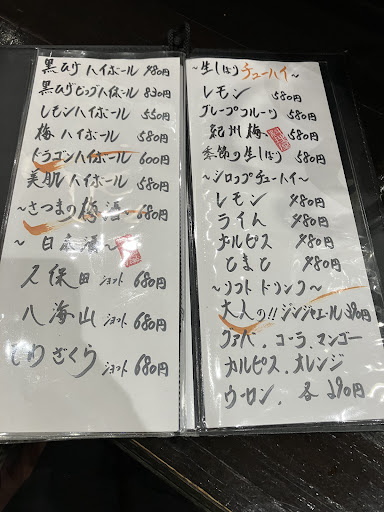 黒ひげハイボール 480円
黒ひげビッグハイボール 830円
レモンハイボール 550円
梅ハイボール 580円
ドラゴンハイボール 600円
美肌ハイボール 580円
～さつまの梅酒～ 680円
～日本酒～
久保田 ショット 680円
八海山 ショット 680円
ショット 680円
～生しぼりチューハイ～
レモン 580円
グレープフルーツ 580円
紀州梅 580円
季節の生しぼり 580円
～シロップチューハイ～
レモン 480円
ライム 480円
カルピス 480円
とまと 480円
～ソフトドリンク～
大人の!!ジンジャエール 390円
グァバ、コーラ、マンゴー
カルピス、オレンジ
ウーロン、各290円